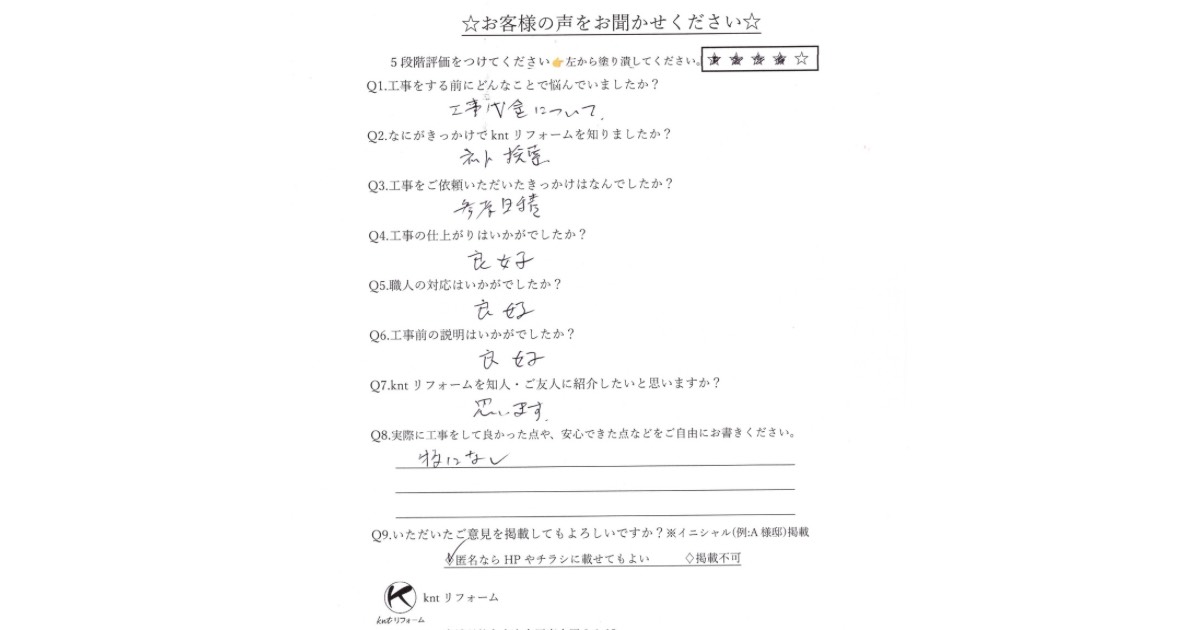 ☆お客様の声をお聞かせください☆
5段階評価をつけてください👉左から塗り潰してください。★★★★☆
Q1.工事をする前にどんなことで悩んでいましたか？
工事代金について.
Q2.なにがきっかけで knt リフォームを知りましたか？
ネット検索
Q3.工事をご依頼いただいたきっかけはなんでしたか？
Q4.工事の仕上がりはいかがでしたか？
良好
Q5.職人の対応はいかがでしたか？
良好
Q6.工事前の説明はいかがでしたか？
良好
Q7.knt リフォームを知人・ご友人に紹介したいと思いますか？
思います.
Q8.実際に工事をして良かった点や、安心できた点などをご自由にお書きください。
特になし
Q9.いただいたご意見を掲載してもよろしいですか？※イニシャル(例:A 様邸)掲載
✓匿名なら HP やチラシに載せてもよい ♢掲載不可
knt リフォーム
knt リフォーム